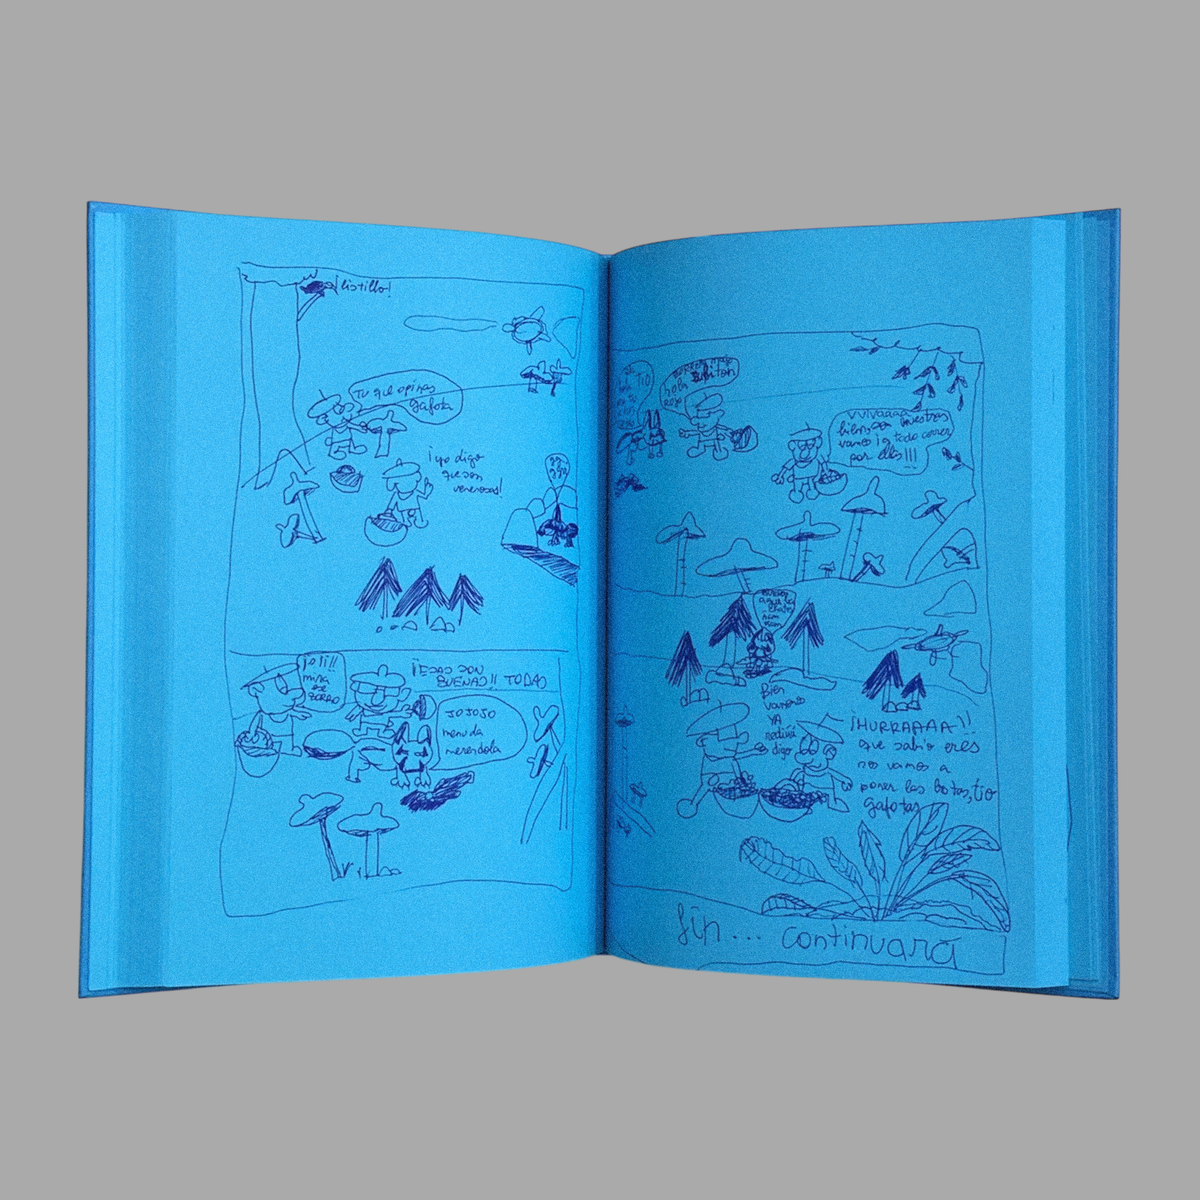 ¡listillo!
Tu que opinas
gafota
¡yo digo
que son
venenosas!
¡oli!!
mira
ese
ZORRO
¡ESAS SON
BUENAS!! TODAS
JOJOJO
menuda
merendola
TIO
hola
VVIVAAAA
bien, son nuestras
vamos ¡a todo correr
por ellas!!!
Bien
vamonos
YA
digo
¡HURRAAAA!!
que sabio eres
nos vamos a
poner las botas, tio
gafotas
fin... continuará